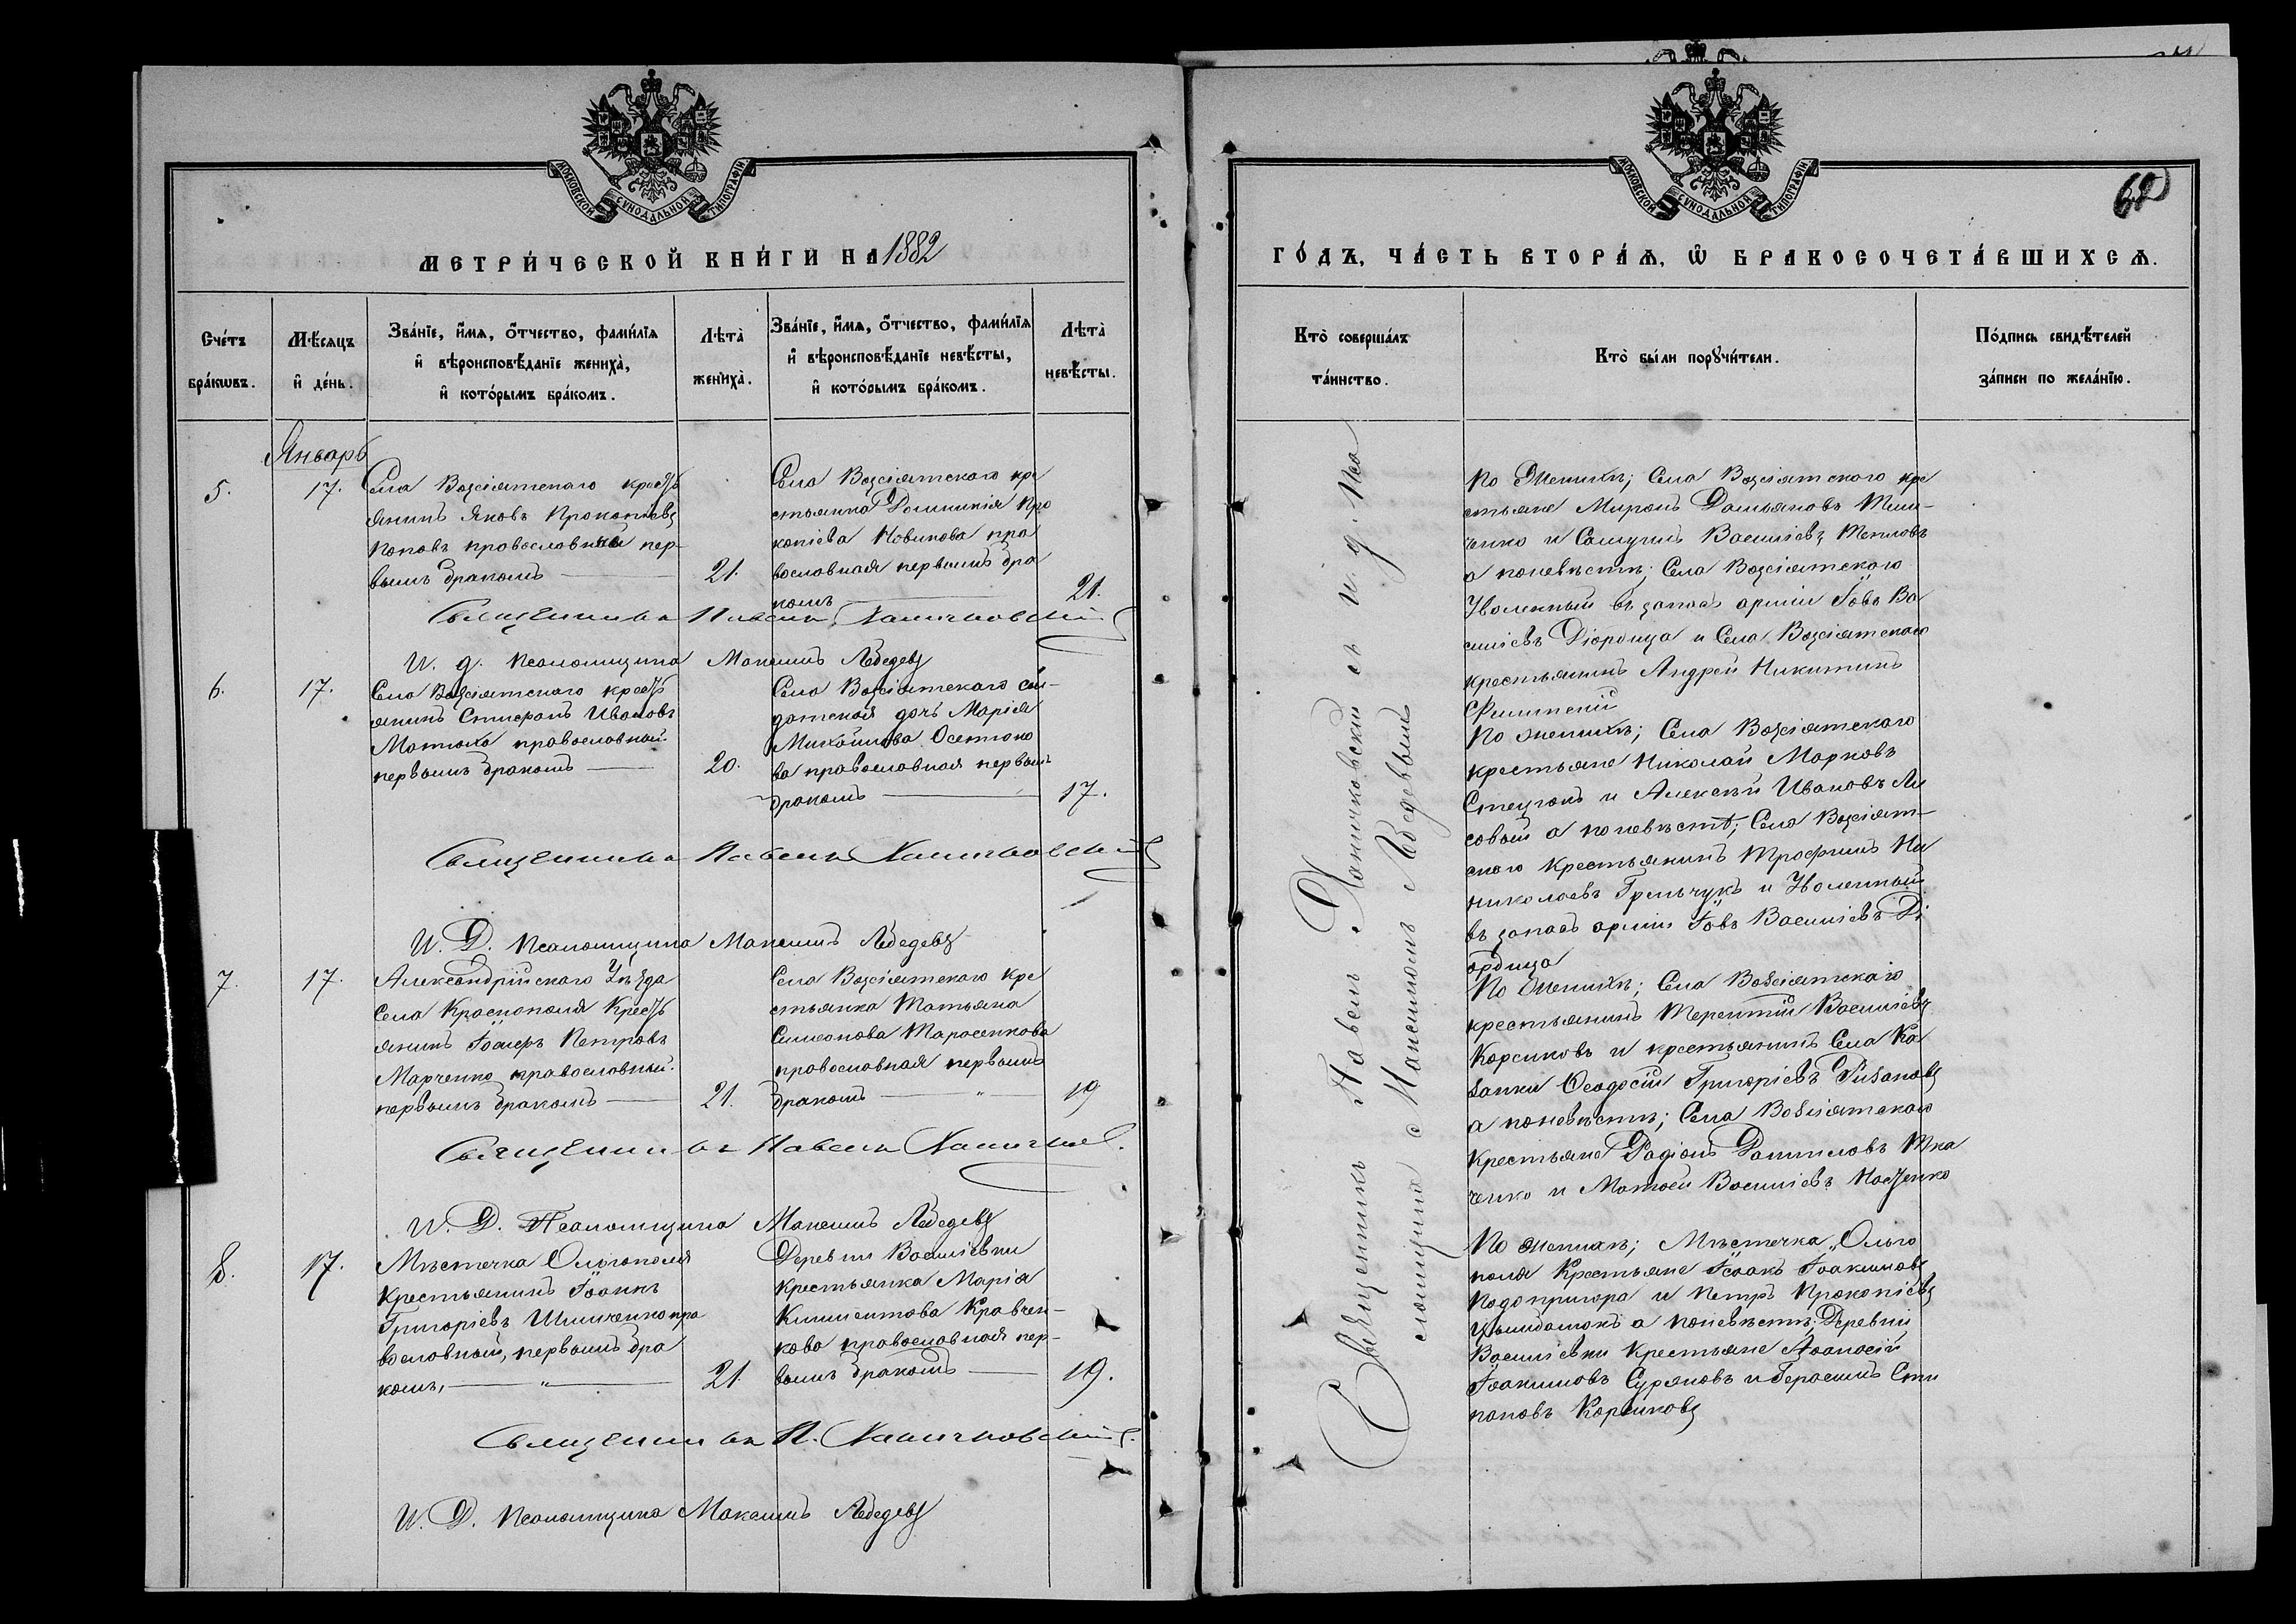 МОСКОВСКОЙ СѴНОДАЛЬНОЙ ТИПОГРАФІИ
МЕТРИ́ЧЕСКОЙ КНИ́ГИ НА 1882
Сче́тъ
бра́кѡвъ.
Мѣ́сяцъ
и҆ де́нь.
Зва́нїе, и҆́мѧ, о҆́тчество, фами́лїѧ
и҆ вѣроисповѣ́данїе жениха̀,
и҆ кото́рымъ бра́комъ.
Лѣта̀
жениха̀.
Зва́нїе, и҆́мѧ, о҆́тчество, фами́лїѧ
и҆ вѣроисповѣ́данїе невѣ́сты,
и҆ кото́рымъ бра́комъ.
Лѣта̀
невѣ́сты.
Январь
5.
17.
Села Возсіятскаго кресть
янинъ Яковъ Прокопіевъ
Поповъ православный пер-
вымъ бракомъ
21.
Села Возсіятскаго кре
стьянка Домникія Про
копіева Новикова пра
вославная первымъ бра
комъ
21.
Священникъ Павелъ Ханичковскій
И. д. псаломщика Максимъ Лебедевъ
6.
17.
Села Возсіятскаго кресть
янинъ Стефанъ Ивановъ
Матюха православный
первымъ бракомъ
20.
Села Возсіятскаго сол-
датская дочь Марія
Михайлова
ва православная первымъ
бракомъ
17.
Священникъ Павелъ Ханичковскій
И. Д. Псаломщика Максимъ Лебедевъ
7.
17.
Александрійскаго Уѣзда
Села Краснополя Кресть
янинъ Петровъ
Марченко православный
первымъ бракомъ
21.
Села Возсіятскаго кре
стьянка Татьяна
Симеонова Тарасенкова
православная первымъ
бракомъ
19
Священникъ Павелъ
И. Д. Псаломщика Максимъ Лебедевъ
8.
17.
Мѣстечка Ольгополя
Крестьянинъ Іоаннъ
Григоріевъ Шимченко пра
вославный, первымъ бра
комъ,
21.
Деревни Василіевки
Крестьянка Марія
Климентова Кравчен-
кова православная пер-
вымъ бракомъ
19.
Священникъ П. Ханичковскій
И. Д. Псаломщика Максимъ Лебедевъ
МОСКОВСКОЙ СѴНОДАЛЬНОЙ ТИПОГРАФІИ
ГО́ДЪ, ЧА́СТЬ ВТОРА́Ѧ, Ѡ҆ БРАКОСОЧЕТА́ВШИХСѦ.
Кто̀ соверша́лъ
та́инство.
Кто̀ бы́ли порꙋчи́тели.
По́дпись свидѣ́телей
за́писи по жела́нїю.
Священникъ Павелъ Ханичковскій съ и. д. пса
ломщика Максимомъ Лебедевымъ
По Женихѣ; Села Возсіятского кре
стьяне Миронъ Дамьяновъ Тим-
ченко и Самуилъ Василіевъ Тепловъ
а поневѣстѣ; Села Возсіятского
Уволенный въ запасъ арміи Іовъ Ва
силіевъ Діордица и Села Возсіятскаго
крестьянинъ Андрей Никитинъ
По женихѣ; Села Возсіятскаго
крестьяне Николай Марковъ
Стецюкъ и Алексѣй Ивановъ Ли
совый а поневѣстѣ; Села Возсіят-
скаго Крестьянинъ Трофимъ Ни
николаевъ Грельчукъ и Уволенный
въ запасъ арміи Іовъ Василіевъ Ді
ордица
По Женихѣ; Села Возсіятскаго
крестьянинъ Терентій Василіевъ
Корсиковъ и крестьянинъ Села Ка
занки Ѳеодосій Григоріевъ
а поневѣстѣ; Села Возсіятскаго
Крестьяне Родіонъ Даниловъ Тка
ченко и Матѳей Василіевъ Костенко
По женихѣ; Мѣстечка „Ольго
поля Крестьяне Ісаакъ Іоакимовъ
Подопригора и Петръ Прокопіевъ
а поневѣстѣ; Деревни
Василіевки Крестьяне Аѳанасій
Іоакимовъ Суряновъ и Герасимъ Сти
пановъ Корсиковъ